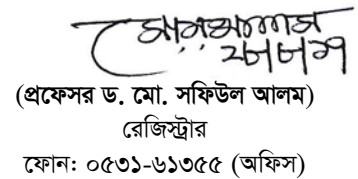 (প্রফেসর ড. মো. সফিউল আলম)
রেজিস্ট্রার
ফোন: ০৫৩১-৬১৩৫৫ (অফিস)